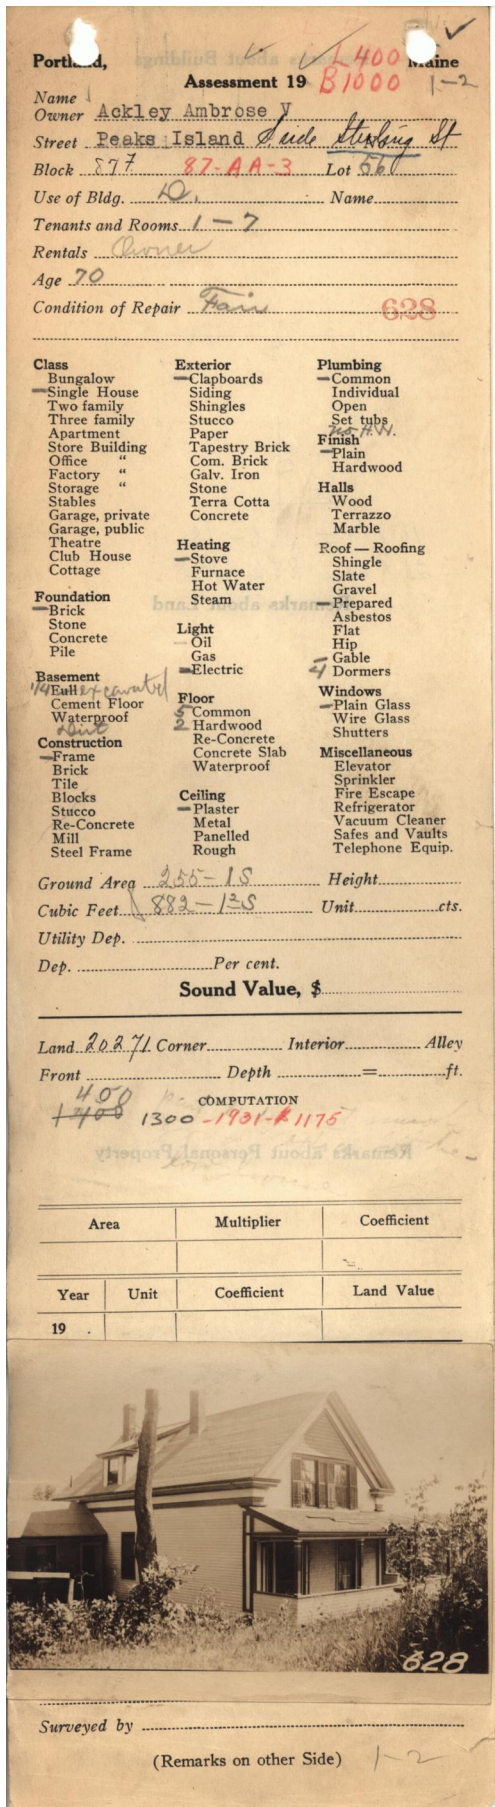 Portland, L 400 Maine
Assessment 19 B 1000 1-2
Name
Owner Ackley Ambrose V
Street Peaks Island S side Sterling St
Block 877 87-AA-3 Lot 56
Use of Bldg. D. Name
Tenants and Rooms 1-7
Rentals Owner
Age 70
Condition of Repair Fair 628
Class
Bungalow
Single House
Two family
Three family
Apartment
Store Building
Office "
Factory "
Storage "
Stables
Garage, private
Garage, public
Theatre
Club House
Cottage
Foundation
Brick
Stone
Concrete
Pile
Basement
1/4 Full excavated
Cement Floor
Waterproof
Dirt
Construction
Frame
Brick
Tile
Blocks
Stucco
Re-Concrete
Mill
Steel Frame
Exterior
Clapboards
Siding
Shingles
Stucco
Paper
Tapestry Brick
Com. Brick
Galv. Iron
Stone
Terra Cotta
Concrete
Heating
Stove
Furnace
Hot Water
Steam
Light
Oil
Gas
Electric
Floor
5 Common
2 Hardwood
Re-Concrete
Concrete Slab
Waterproof
Ceiling
Plaster
Metal
Panelled
Rough
Plumbing
Common
Individual
Open
Set tubs
no H.W.
Finish
Plain
Hardwood
Halls
Wood
Terrazzo
Marble
Roof — Roofing
Shingle
Slate
Gravel
Prepared
Asbestos
Flat
Hip
Gable
4 Dormers
Windows
Plain Glass
Wire Glass
Shutters
Miscellaneous
Elevator
Sprinkler
Fire Escape
Refrigerator
Vacuum Cleaner
Safes and Vaults
Telephone Equip.
Ground Area 255-1S Height
Cubic Feet 882-1½S Unit cts.
Utility Dep.
Dep. Per cent.
Sound Value, $
Land 20271 Corner Interior Alley
Front Depth = ft.
400 COMPUTATION
1400 1300 -1931-# 1175
Remarks about Personal Property
Area Multiplier Coefficient
Year Unit Coefficient Land Value
19 .
628
Surveyed by
(Remarks on other Side) 1-2